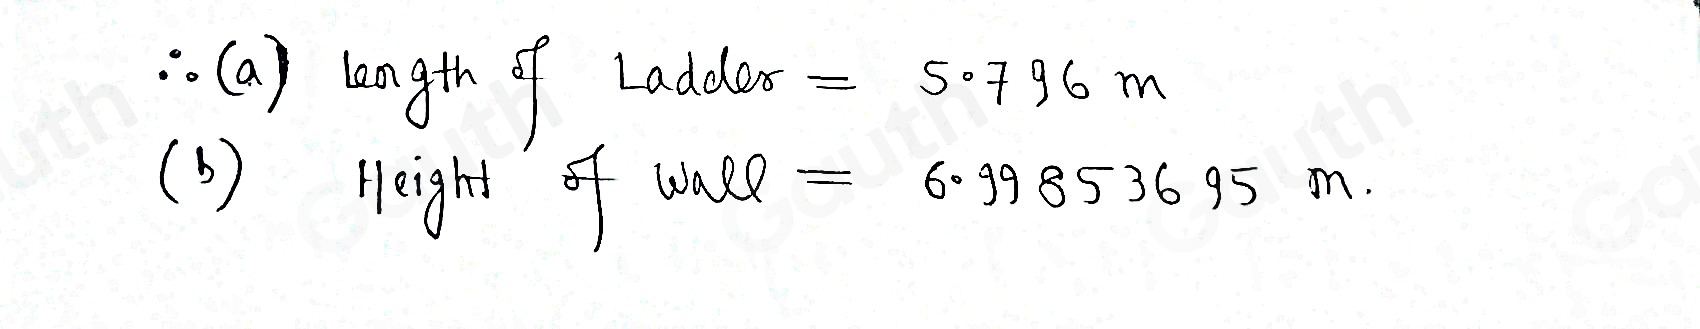 ∴ (a) Length of Ladder = 5.796 m
(b) Height of Wall = 6.99853695 m.